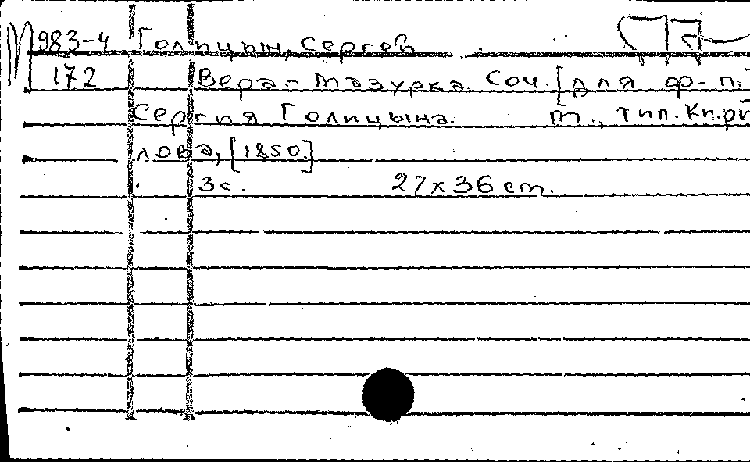 М 983-4 Голицын, Сергей
172 Вера-мазурка. Соч. [для ф-п.]
Сергия Голицына. М., тип. Кирил
лова, [1850.]
3 с. 27х36 см.